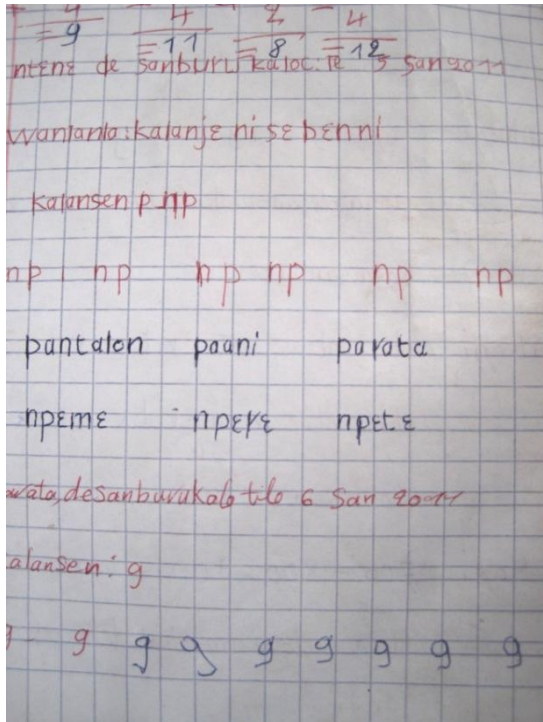 4 2 4
= 9 = 11 = 8 = 12
ntɛnɛ de sanburu kaloc tɛ 5 san 2011
wanlanlo: kalanjɛ ni sɛbɛnni
kalansen p np
np np np np np np
pantalon paani parata
npɛmɛ npɛrɛ npɛtɛ
wata, desanburukalo tilo 6 San 2011
alansen: g
g g g g g g g g